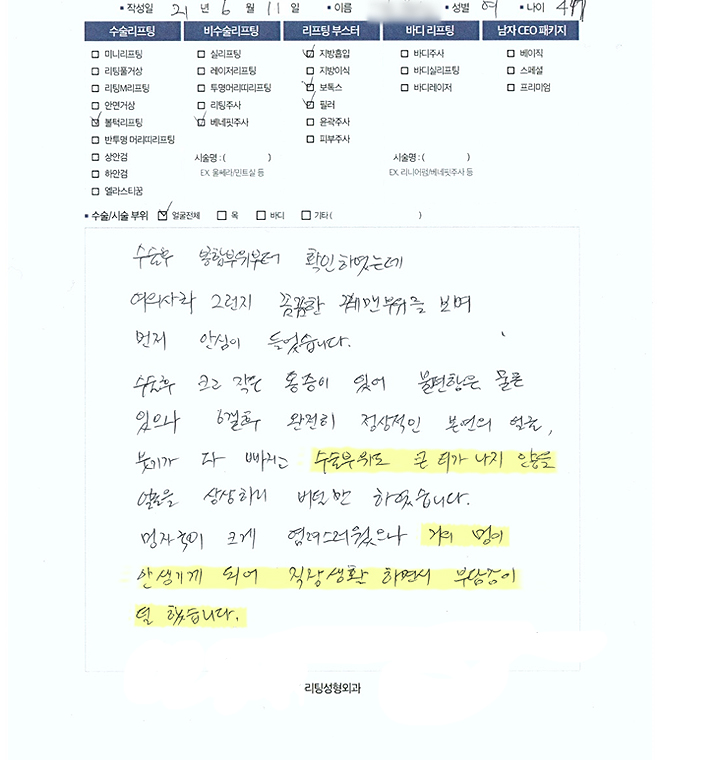 • 작성일 21 년 6 월 11 일 • 이름 • 성별 여 • 나이 47
수술리프팅 비수술리프팅 리프팅 부스터 바디 리프팅 남자 CEO 패키지
미니리프팅 실리프팅 지방흡입 바디주사 베이직
리팅풀거상 레이저리프팅 지방이식 바디실리프팅 스페셜
리팅M리프팅 투명머리띠리프팅 보톡스 바디레이저 프리미엄
안면거상 리팅주사 필러
볼턱리프팅 베네핏주사 윤곽주사
반투명 머리띠리프팅 피부주사
상안검 시술명 : ( ) 시술명 : ( )
하안검 EX. 울쎄라/민트실 등 EX. 리니어펌/베네핏주사 등
엘라스티꿈
• 수술/시술 부위 얼굴전체 목 바디 기타 ( )
수술후 봉합부위부터 확인하였는데
여의사라 그런지 꼼꼼한 꿰맨부위를 보며
먼저 안심이 들었습니다.
수술후 크고 작은 통증이 있어 불편함은 물론
있으나 완전히 정상적인 본연의 얼굴,
붓기가 다 빠지고 수술부위도 큰 티가 나지 않을
얼굴을 상상하며 버텨 하였습니다.
멍자국이 크게 염려스러웠으나 거의 멍이
안생기게 되어 직장생활 하면서 부담증이
덜 했습니다.
리팅성형외과